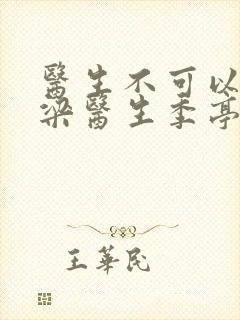 醫生不可以
梁醫生季亭
王華民